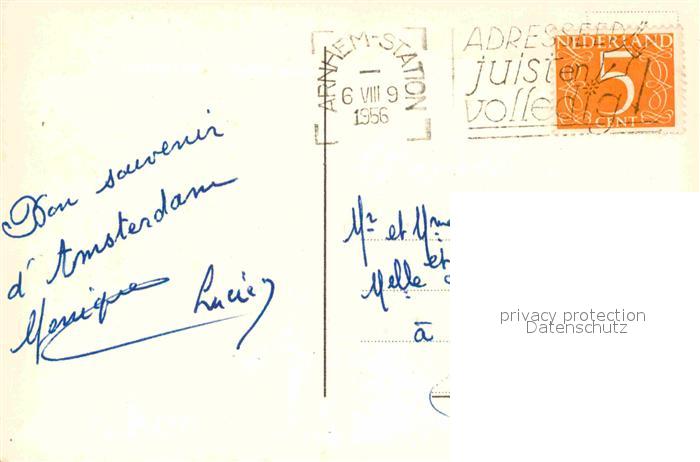 ARNHEM-STATION
6 VIII 9
1956
ADRESSEER
juist en
volledig!
NEDERLAND
5
CENT
Bon souvenir
d'Amsterdam
Monique Lucien
Mr et Mme
Melle et
à
privacy protection
Datenschutz